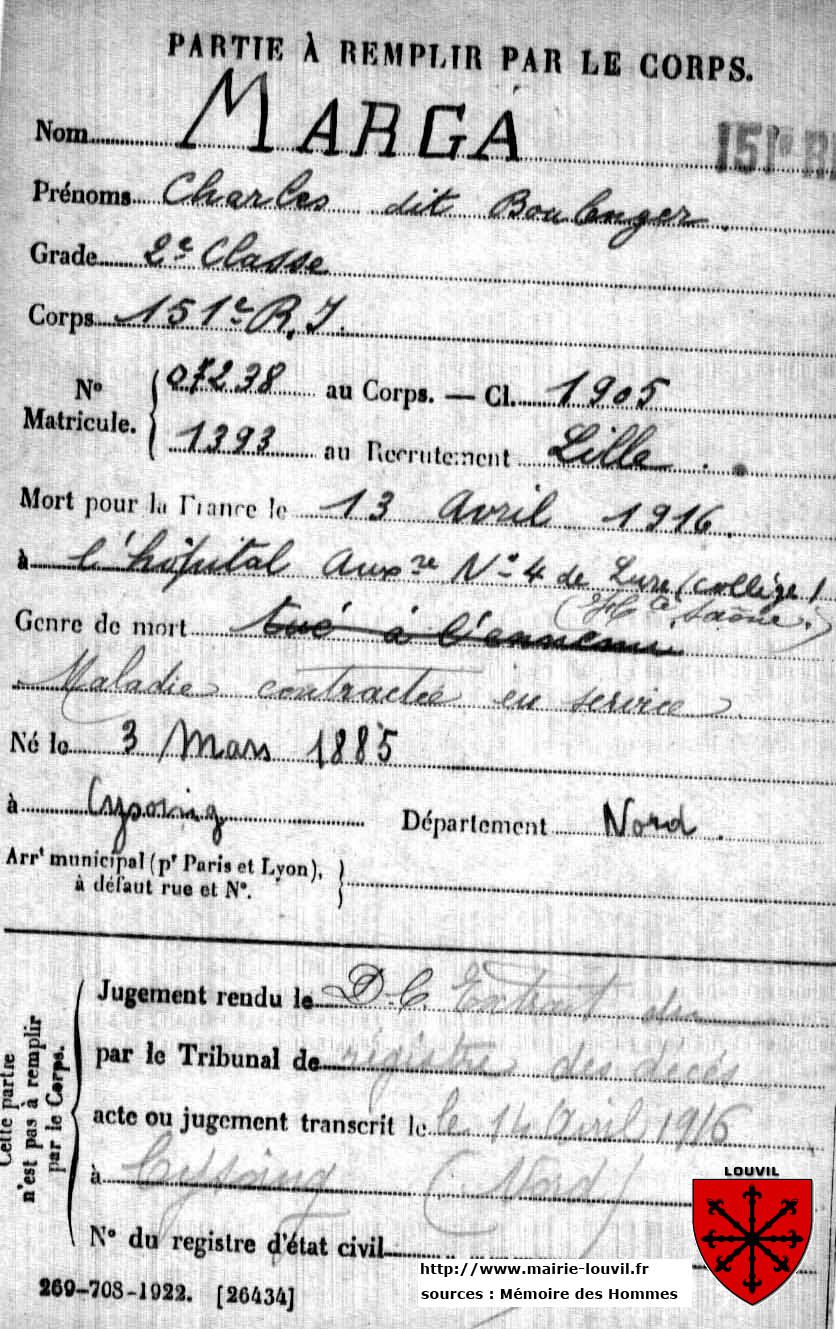 PARTIE À REMPLIR PAR LE CORPS.
Nom MARGA
151e RI
Prénoms Charles dit Boulenger.
Grade 2e Classe
Corps 151e R.I.
No Matricule. 07238 au Corps. — Cl. 1905
1393 au Recrutement Lille.
Mort pour la France le 13 Avril 1916.
à l'hôpital Auxre No 4 de Lure (collège)
(Hte Saône.)
Genre de mort tué à l'ennemi
Maladie contractée en service
Né le 3 Mars 1885
à Cysoing Département Nord.
Arrt municipal (pr Paris et Lyon),
à défaut rue et No.
Cette partie
n'est pas à remplir
par le Corps.
Jugement rendu le D.C. Extrait du
par le Tribunal de registre des décès
acte ou jugement transcrit le le 14 Avril 1916
à Cysoing (Nord)
No du registre d'état civil
269-708-1922. [26434]
LOUVIL
http://www.mairie-louvil.fr
sources : Mémoire des Hommes